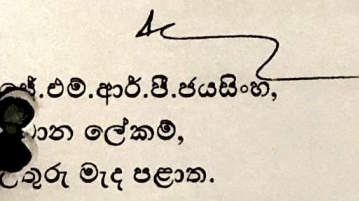 ජේ.එම්.ආර්.පී.ජයසිංහ,
ලේකම්,
උතුරු මැද පළාත.